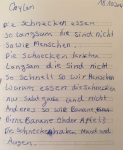 Ceylan 18.10.2011
Die schnecken essen
so Langsam die sind nicht
so wie Menschen.
Die Schnecken
Langsam die sind nicht
so schnell so wie Menschen
Warum essen die schnecken
nur Salat und nicht
Anderes so wie Banane
Birne Banane Oder Apfel?
Die Schnecke Mund und
Augen.